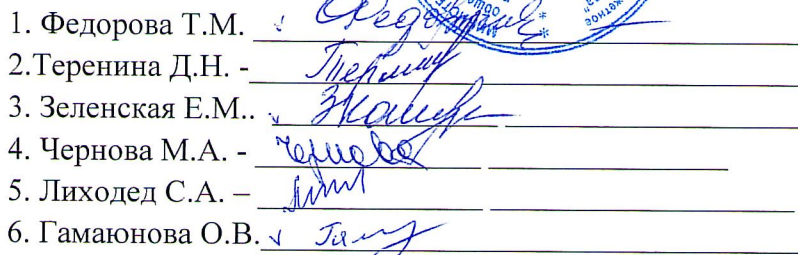 1. Федорова Т.М.
2.Теренина Д.Н. -
3. Зеленская Е.М..
4. Чернова М.А. - Чернова
5. Лиходед С.А. –
6. Гамаюнова О.В.